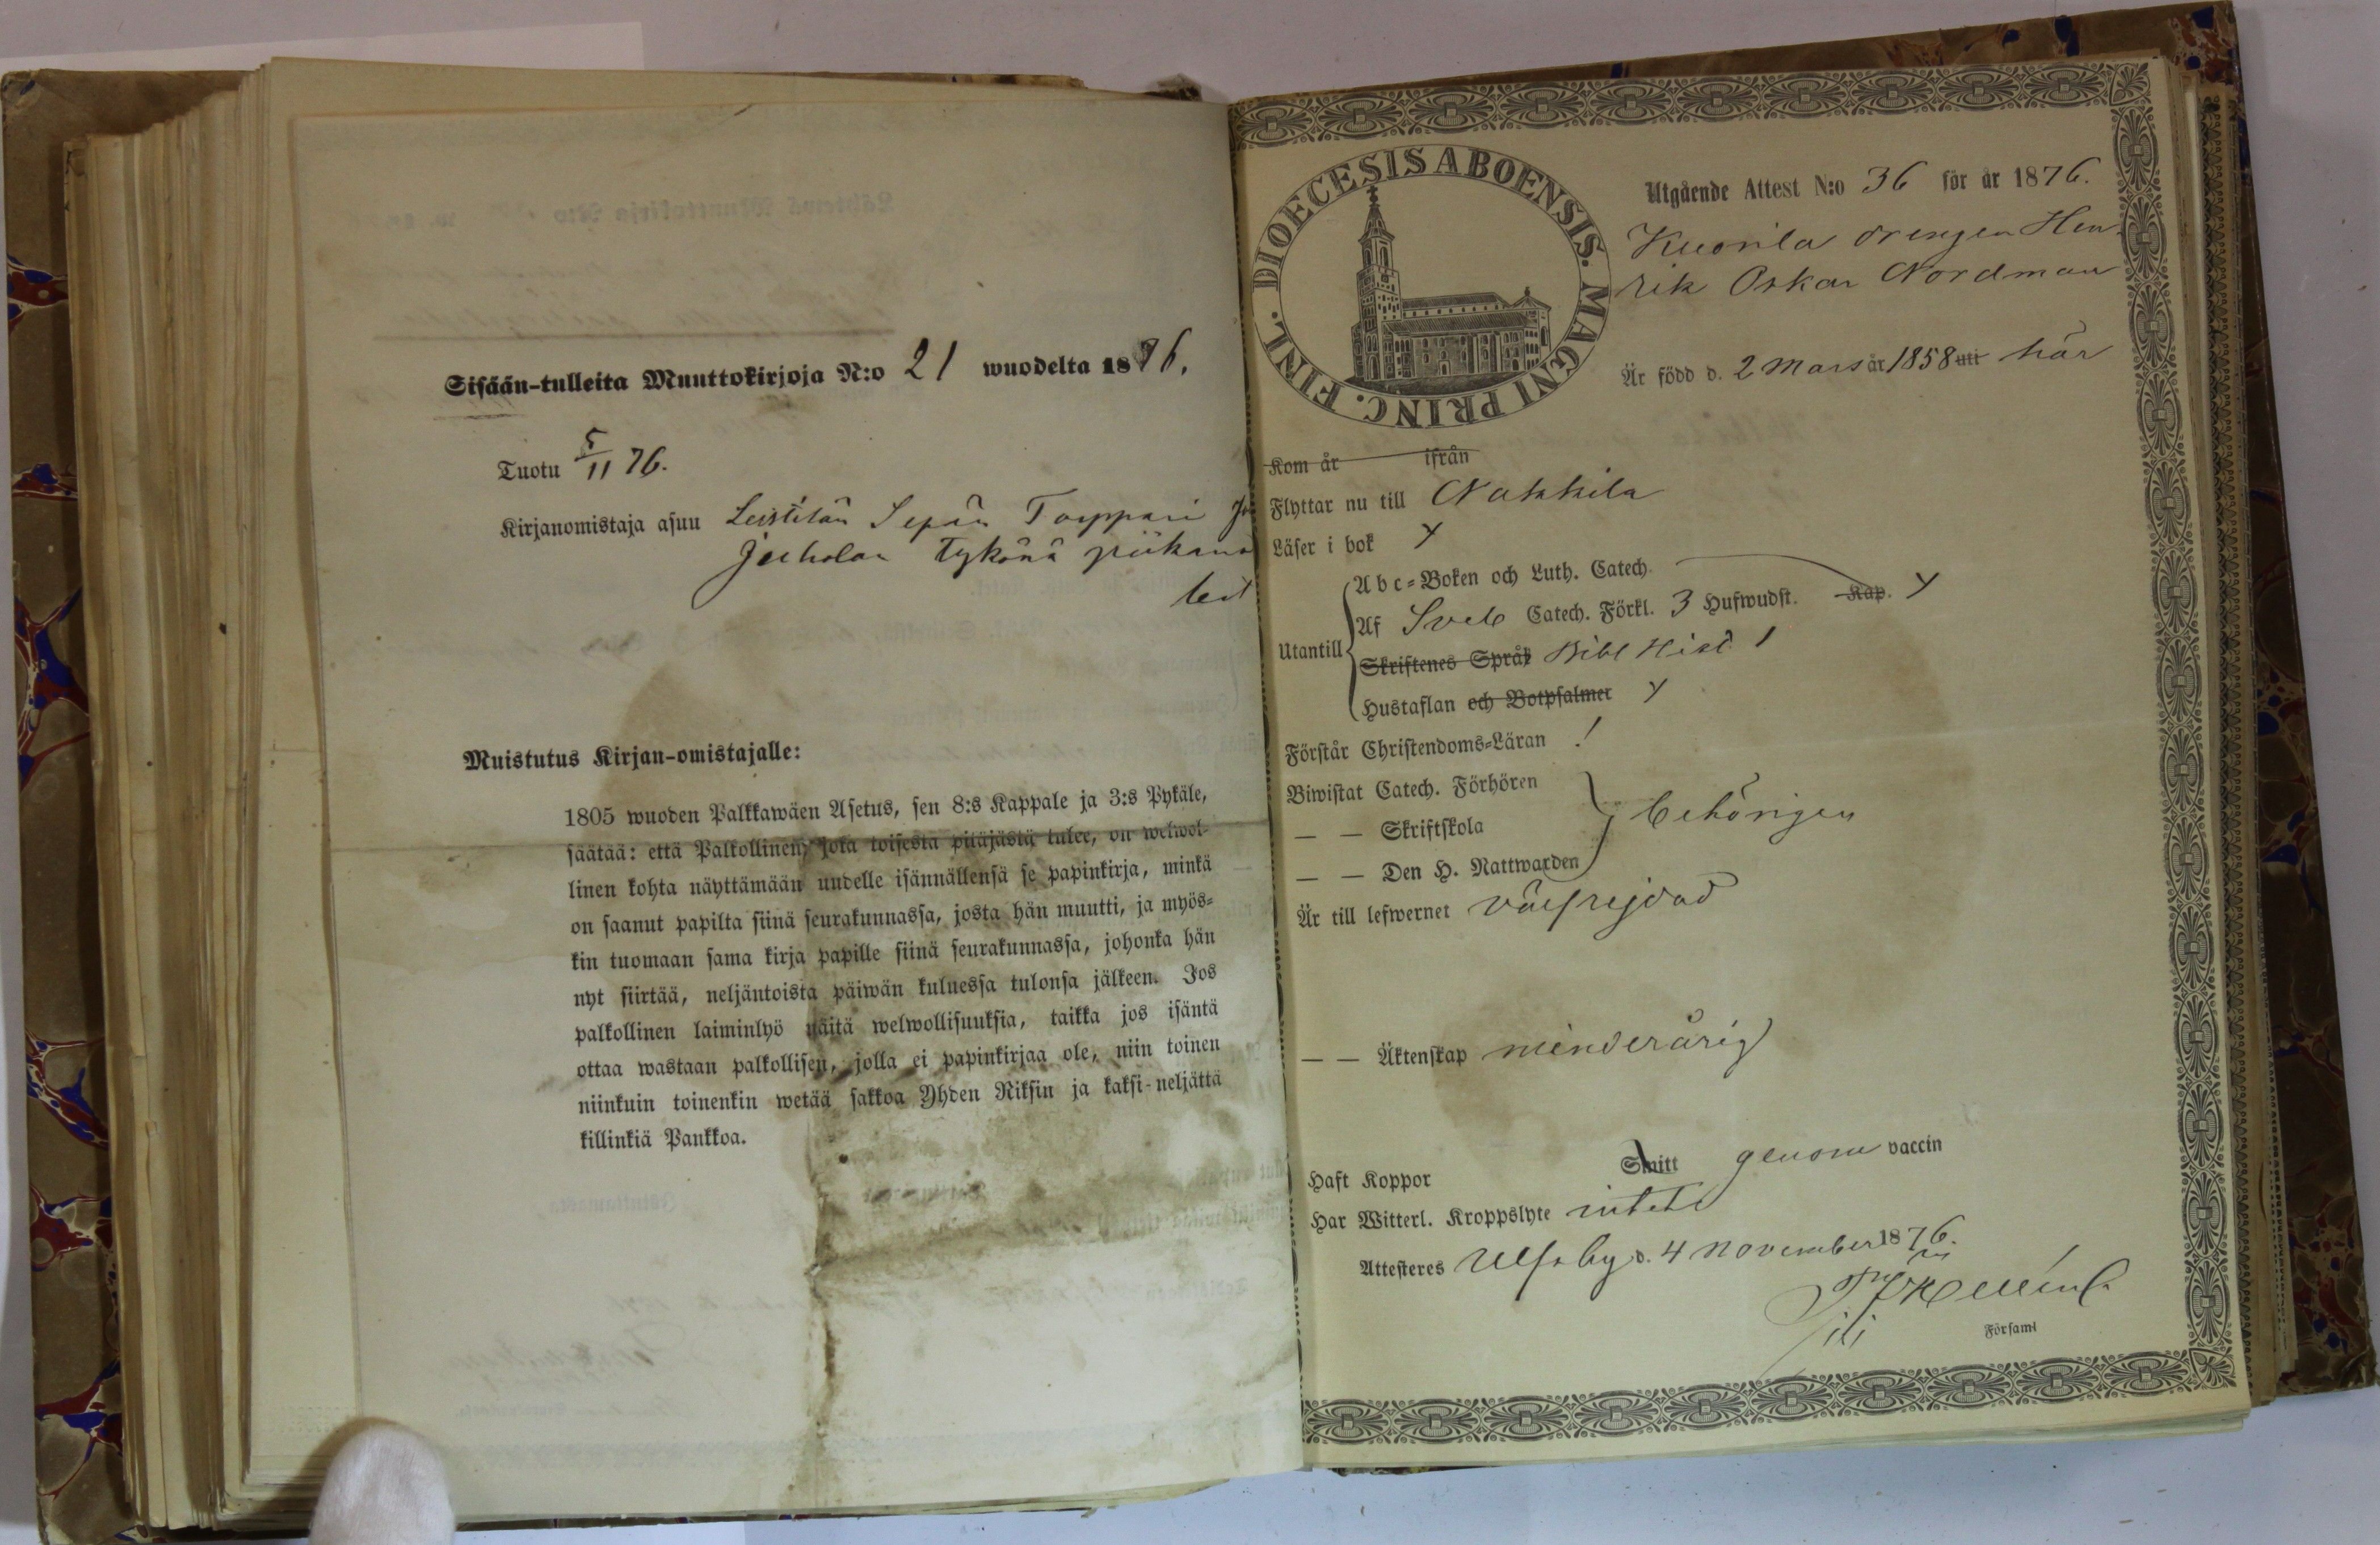 Sisään-tulleita Muuttokirjoja N:o 21 wuodelta 1876.
Tuotu 5/11 76.
Kirjanomistaja asuu Leistilän Sepän Torppari
Juholan tykönä piikana
Muistutus Kirjan-omistajalle:
1805 wuoden Palkkawäen Asetus, sen 8:s Kappale ja 3:s Pykäle,
säätää: että Palkollinen, joka toisesta pitäjästä tulee, on welwol-
linen kohta näyttämään uudelle isännällensä se papinkirja, minkä
on saanut papilta siinä seurakunnassa, josta hän muutti, ja myös-
kin tuomaan sama kirja papille siinä seurakunnassa, johonka hän
nyt siirtää, neljäntoista päiwän kuluessa tulonsa jälkeen. Jos
palkollinen laiminlyö näitä welwollisuuksia, taikka jos isäntä
ottaa wastaan palkollisen, jolla ei papinkirjaa ole, niin toinen
niinkuin toinenkin wetää sakkoa Yhden Riksin ja kaksi-neljättä
killinkiä Pankkoa.
DIOECESIS ABOENSIS. MAGNI PRINC. FINL.
Utgående Attest N:o 36 för år 1876.
Kuorila drengen Hen-
rik Oskar Nordman
Är född d. 2 Mars år 1858 uti här
Kom år ifrån
Flyttar nu till Nakkila
Läser i bok y
Utantill
Abc-Boken och Luth. Catech.
Af Sveb Catech. Förkl. 3 Hufwudst. Kap. y
Skriftenes Språk Bibl Hist 1
Hustaflan och Botpsalmer y
Förstår Christendoms-Läran !
Biwistat Catech. Förhören
— — Skriftskola
behörigen
— — Den H. Nattwarden
Är till lefwernet välfrejdad
— — Äktenskap minderårig
Haft Koppor Smitt genom vaccin
Har Witterl. Kroppslyte intet
Attesteres Ulfsby d. 4 November 1876.
Församl